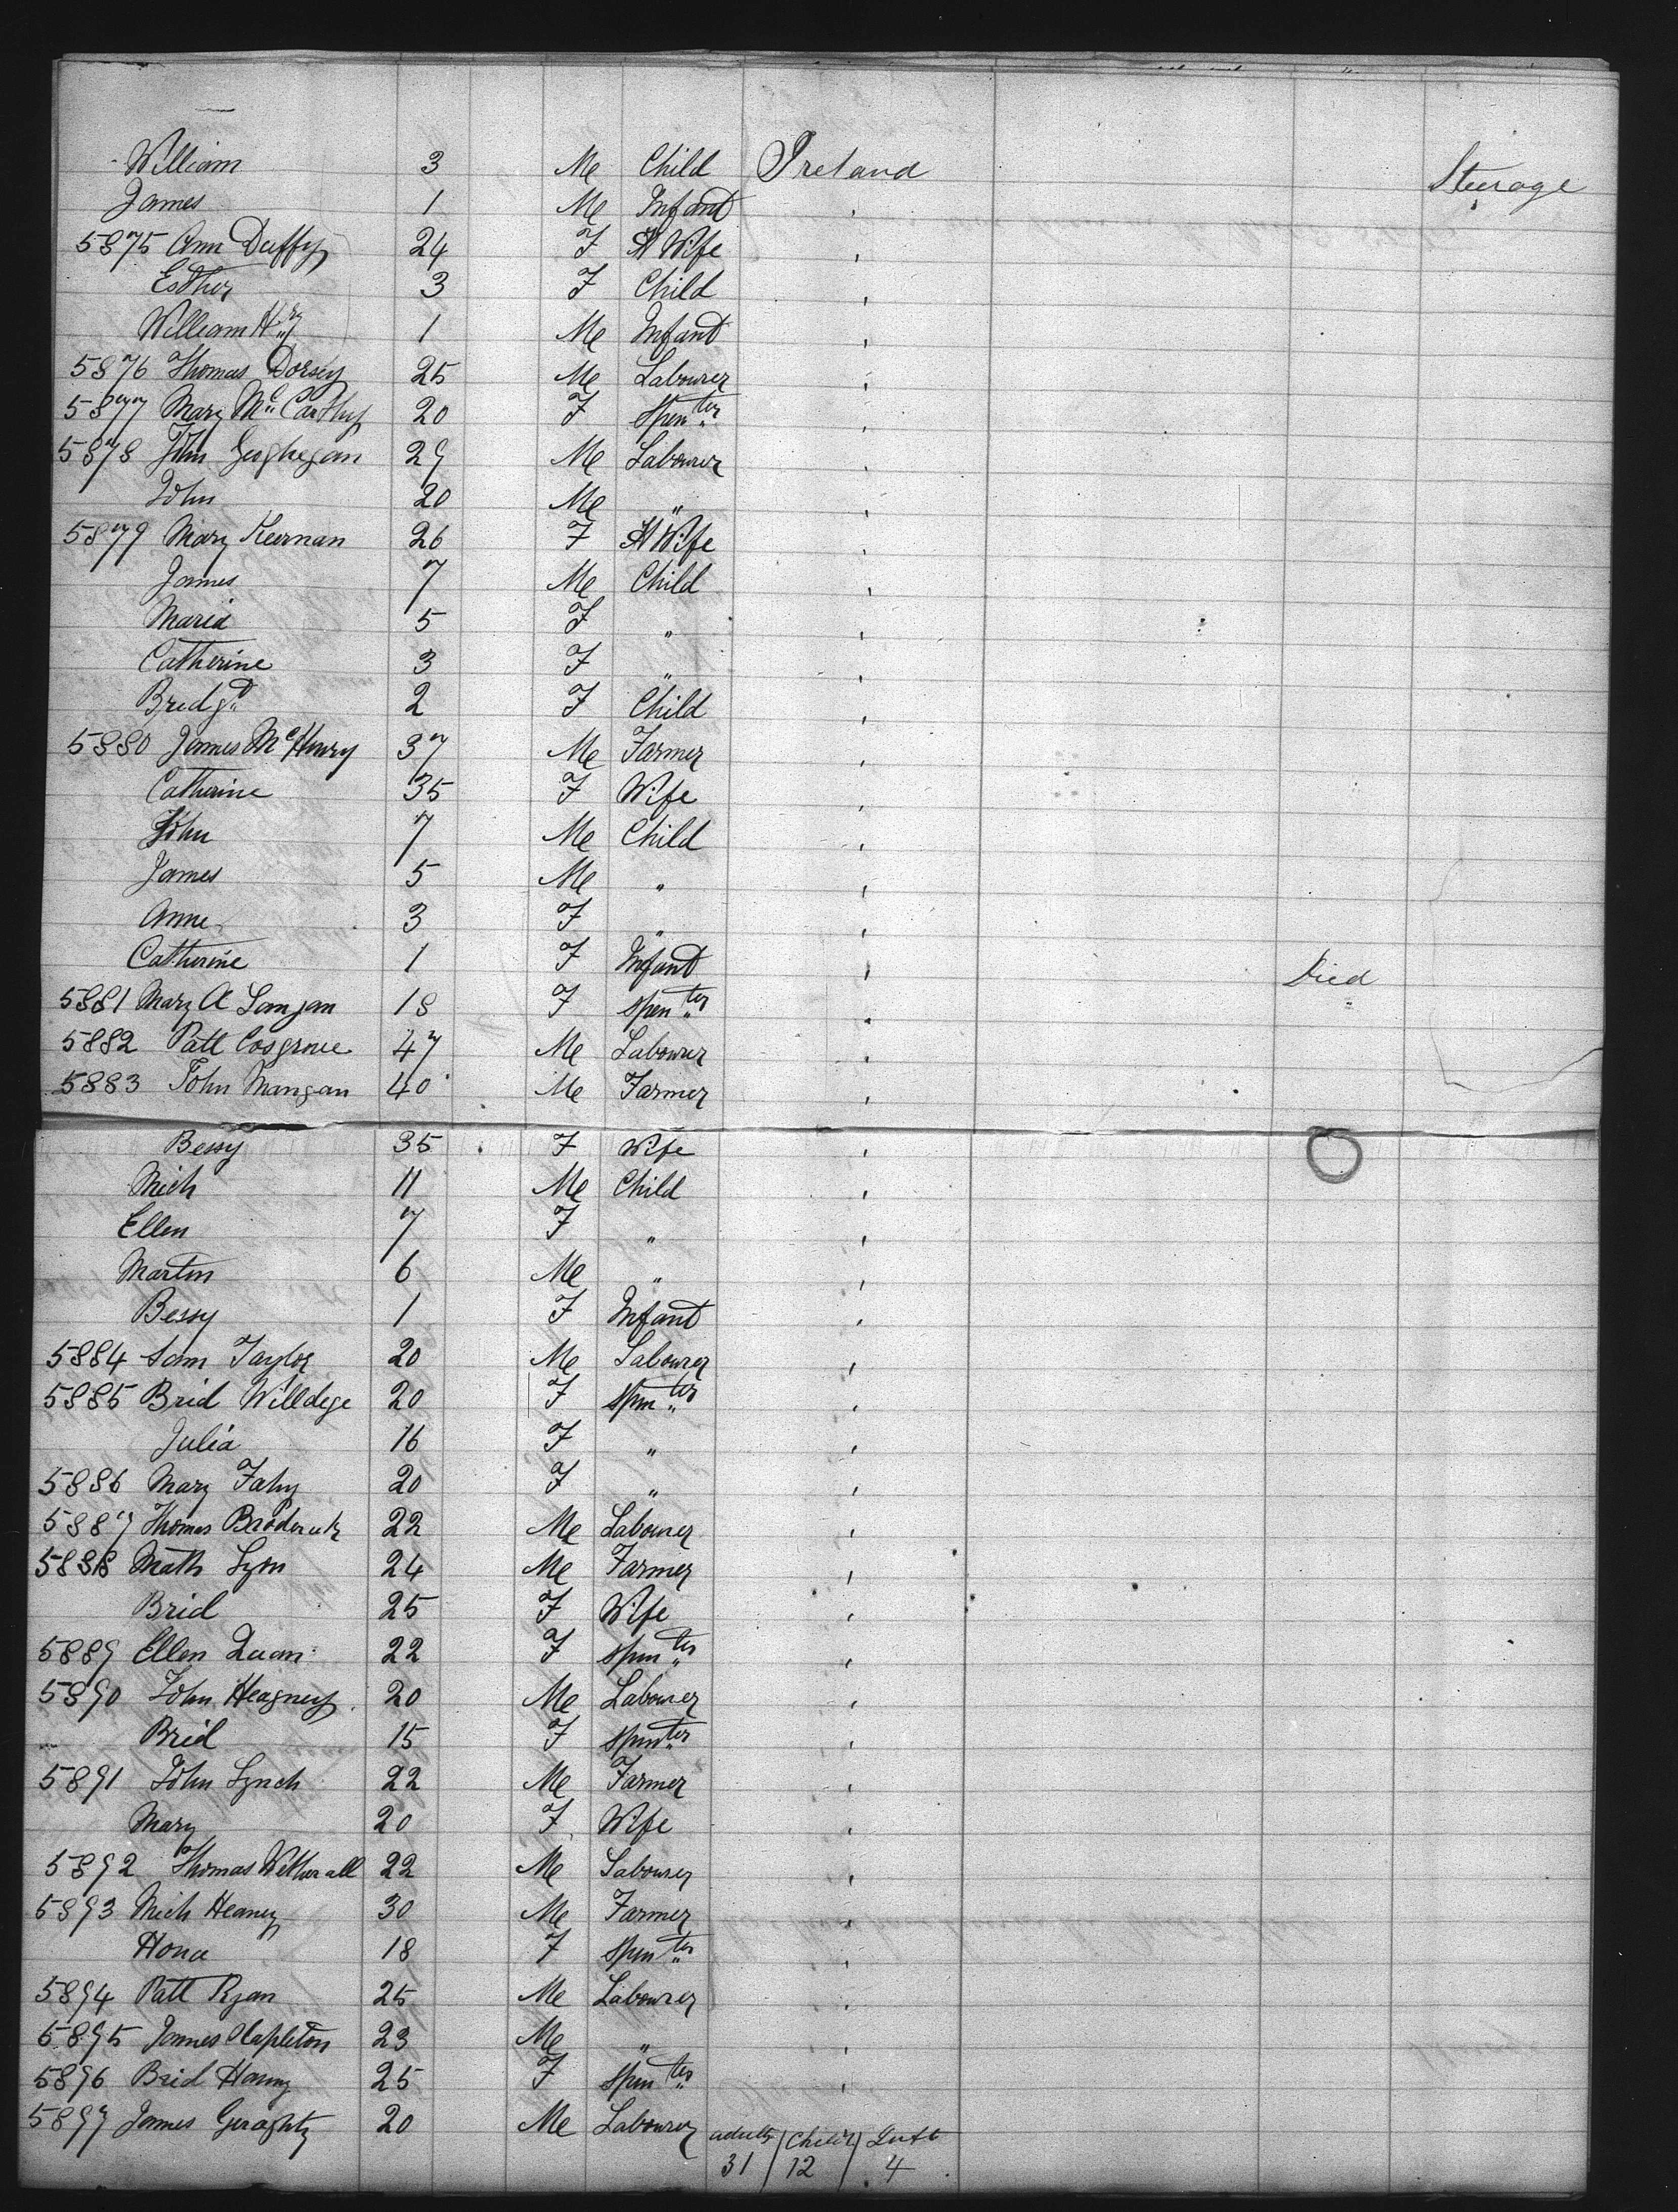 William 3 Me Child Ireland Steerage
James 1 Me Infant "
5875 Ann Duffy 24 F M Wife "
Esther 3 F Child "
William Hry 1 Me Infant "
5876 Thomas Dorsey 25 Me Labourer "
5877 Mary McCarthy 20 F Spenter "
5878 John Geoghegan 29 Me Labourer "
John 20 Me " "
5879 Mary Keernan 26 F M Wife "
James 7 Me Child "
Maria 5 F " "
Catherine 3 F " "
Bridgd 2 F Child "
5880 James McHenry 37 Me Farmer "
Catherine 35 F Wife "
John 7 Me Child "
James 5 Me " "
Anne 3 F " "
Catherine 1 F Infant " Died
5881 Mary A Langan 18 F Spenter "
5882 Patt Cosgrove 47 Me Labourer "
5883 John Mangan 40 Me Farmer "
Bessy 35 F Wife "
Mich 11 Me Child "
Ellen 7 F " "
Martin 6 Me " "
Bessy 1 F Infant "
5884 Sam Taylor 20 Me Labourer "
5885 Brid Willdege 20 F Spenter "
Julia 16 F " "
5886 Mary Fahy 20 F " "
5887 Thomas Broderick 22 Me Labourer "
5888 Math Lyon 24 Me Farmer "
Brid 25 F Wife "
5889 Ellen Quan 22 F Spenter "
5890 John Heagney 20 Me Labourer "
Brid 15 F Spenter "
5891 John Lynch 22 Me Farmer "
Mary 20 F Wife "
5892 Thomas Witherall 22 Me Labourer "
5893 Mich Heaney 30 Me Farmer "
Hona 18 F Spenter "
5894 Patt Ryan 25 Me Labourer "
5895 James Clapleton 23 Me " "
5896 Brid Hanny 25 F Spenter "
5897 James Geraghty 20 Me Labourer
adults / Child / Inft
31 / 12 / 4